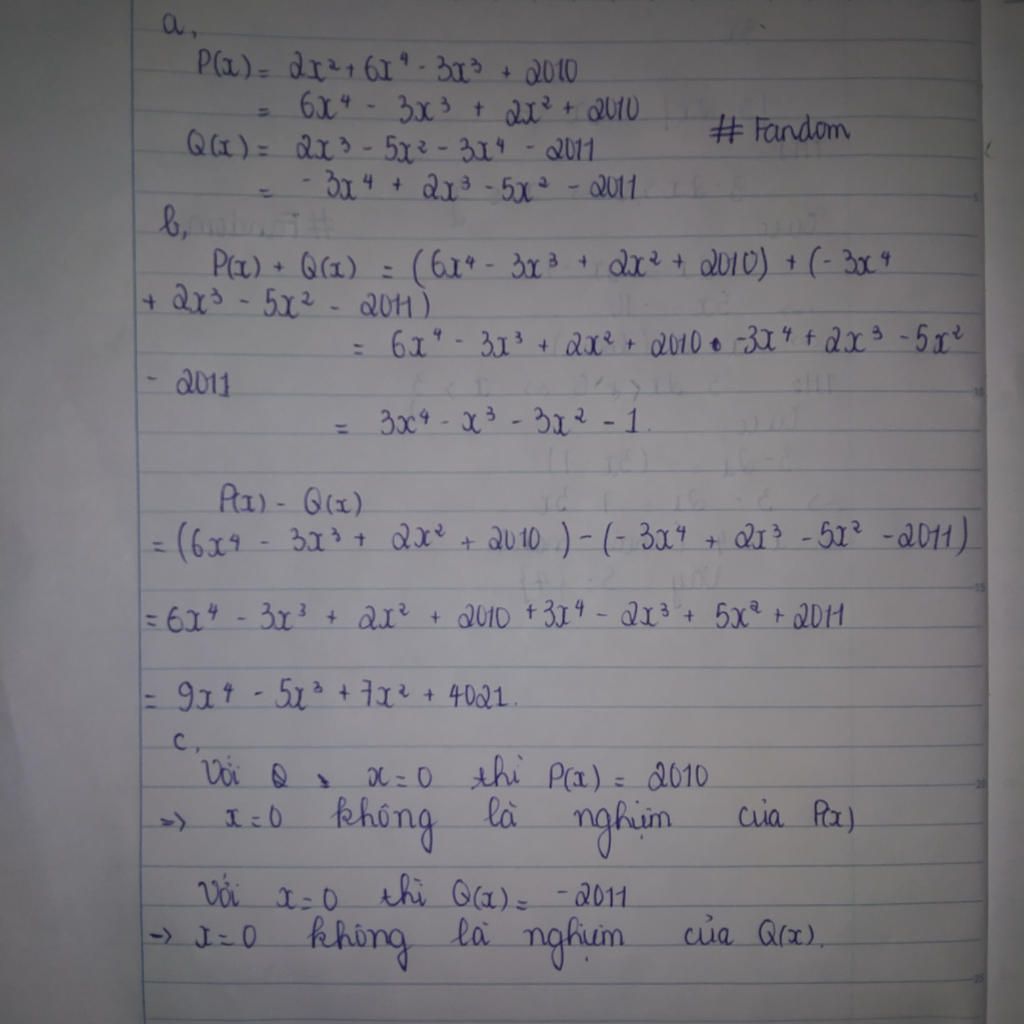 a,
P(x) = 2x² + 6x⁴ - 3x³ + 2010
= 6x⁴ - 3x³ + 2x² + 2010
# Fandom
Q(x) = 2x³ - 5x² - 3x⁴ - 2011
= -3x⁴ + 2x³ - 5x² - 2011
b,
P(x) + Q(x) = (6x⁴ - 3x³ + 2x² + 2010) + (-3x⁴
+ 2x³ - 5x² - 2011)
= 6x⁴ - 3x³ + 2x² + 2010 -3x⁴ + 2x³ - 5x²
- 2011
= 3x⁴ - x³ - 3x² - 1.
P(x) - Q(x)
= (6x⁴ - 3x³ + 2x² + 2010) - (-3x⁴ + 2x³ - 5x² - 2011)
= 6x⁴ - 3x³ + 2x² + 2010 + 3x⁴ - 2x³ + 5x² + 2011
= 9x⁴ - 5x³ + 7x² + 4021.
c,
Với x = 0 thì P(x) = 2010
=> x = 0 không là nghiệm của P(x)
Với x = 0 thì Q(x) = -2011
-> x = 0 không là nghiệm của Q(x).